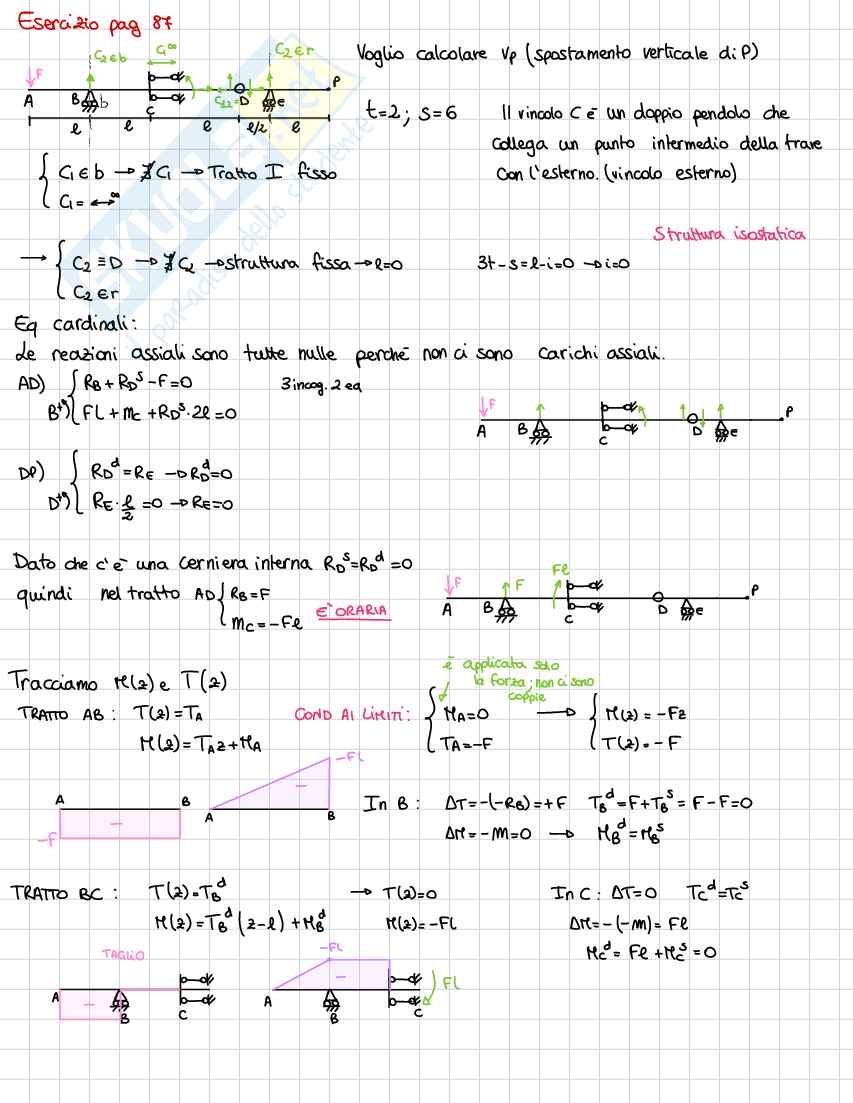 Esercizio pag 87
F
C2∈b
C1∞
C2∈r
A
B
b
C
C12=D
E
P
l
l
l
l/2
l
Voglio calcolare Vp (spostamento verticale di P)
t=2; s=6
Il vincolo C è un doppio pendolo che
collega un punto intermedio della trave
con l'esterno. (vincolo esterno)
C1∈b → ∄C1 → Tratto I fisso
C1=↔∞
Struttura isostatica
→ C2≡D → ∄C2 → struttura fissa → l=0
C2∈r
3t-s=l-i=0 → i=0
Eq cardinali:
Le reazioni assiali sono tutte nulle perché non ci sono carichi assiali.
AD) RB+RDˢ-F=0
3 incog. 2 eq
B↰) Fl+mc+RDˢ·2l=0
F
A B C D E P
DP) RDᵈ=RE → RDᵈ=0
D↰) RE·l/2=0 → RE=0
Dato che c'è una cerniera interna RDˢ=RDᵈ=0
quindi nel tratto AD RB=F
mc=-Fl È ORARIA
F F Fl
A B C D E P
Tracciamo M(z) e T(z)
è applicata solo
la forza; non ci sono
coppie
TRATTO AB: T(z)=TA
M(z)=TAz+MA
COND AI LIMITI: MA=0 → M(z)=-Fz
TA=-F T(z)=-F
A
B
-F
–
-Fl
–
A
B
In B: ΔT=-(-RB)=+F TBᵈ=F+TBˢ=F-F=0
ΔM=-m=0 → MBᵈ=MBˢ
TRATTO BC: T(z)=TBᵈ → T(z)=0
M(z)=TBᵈ(z-l)+MBᵈ M(z)=-Fl
In C: ΔT=0 TCᵈ=TCˢ
ΔM=-(-m)=Fl
MCᵈ=Fl+MCˢ=0
TAGLIO
A
–
B
C
-Fl
–
A
B
C
Fl
SKUOLA.net
il paradiso dello studente